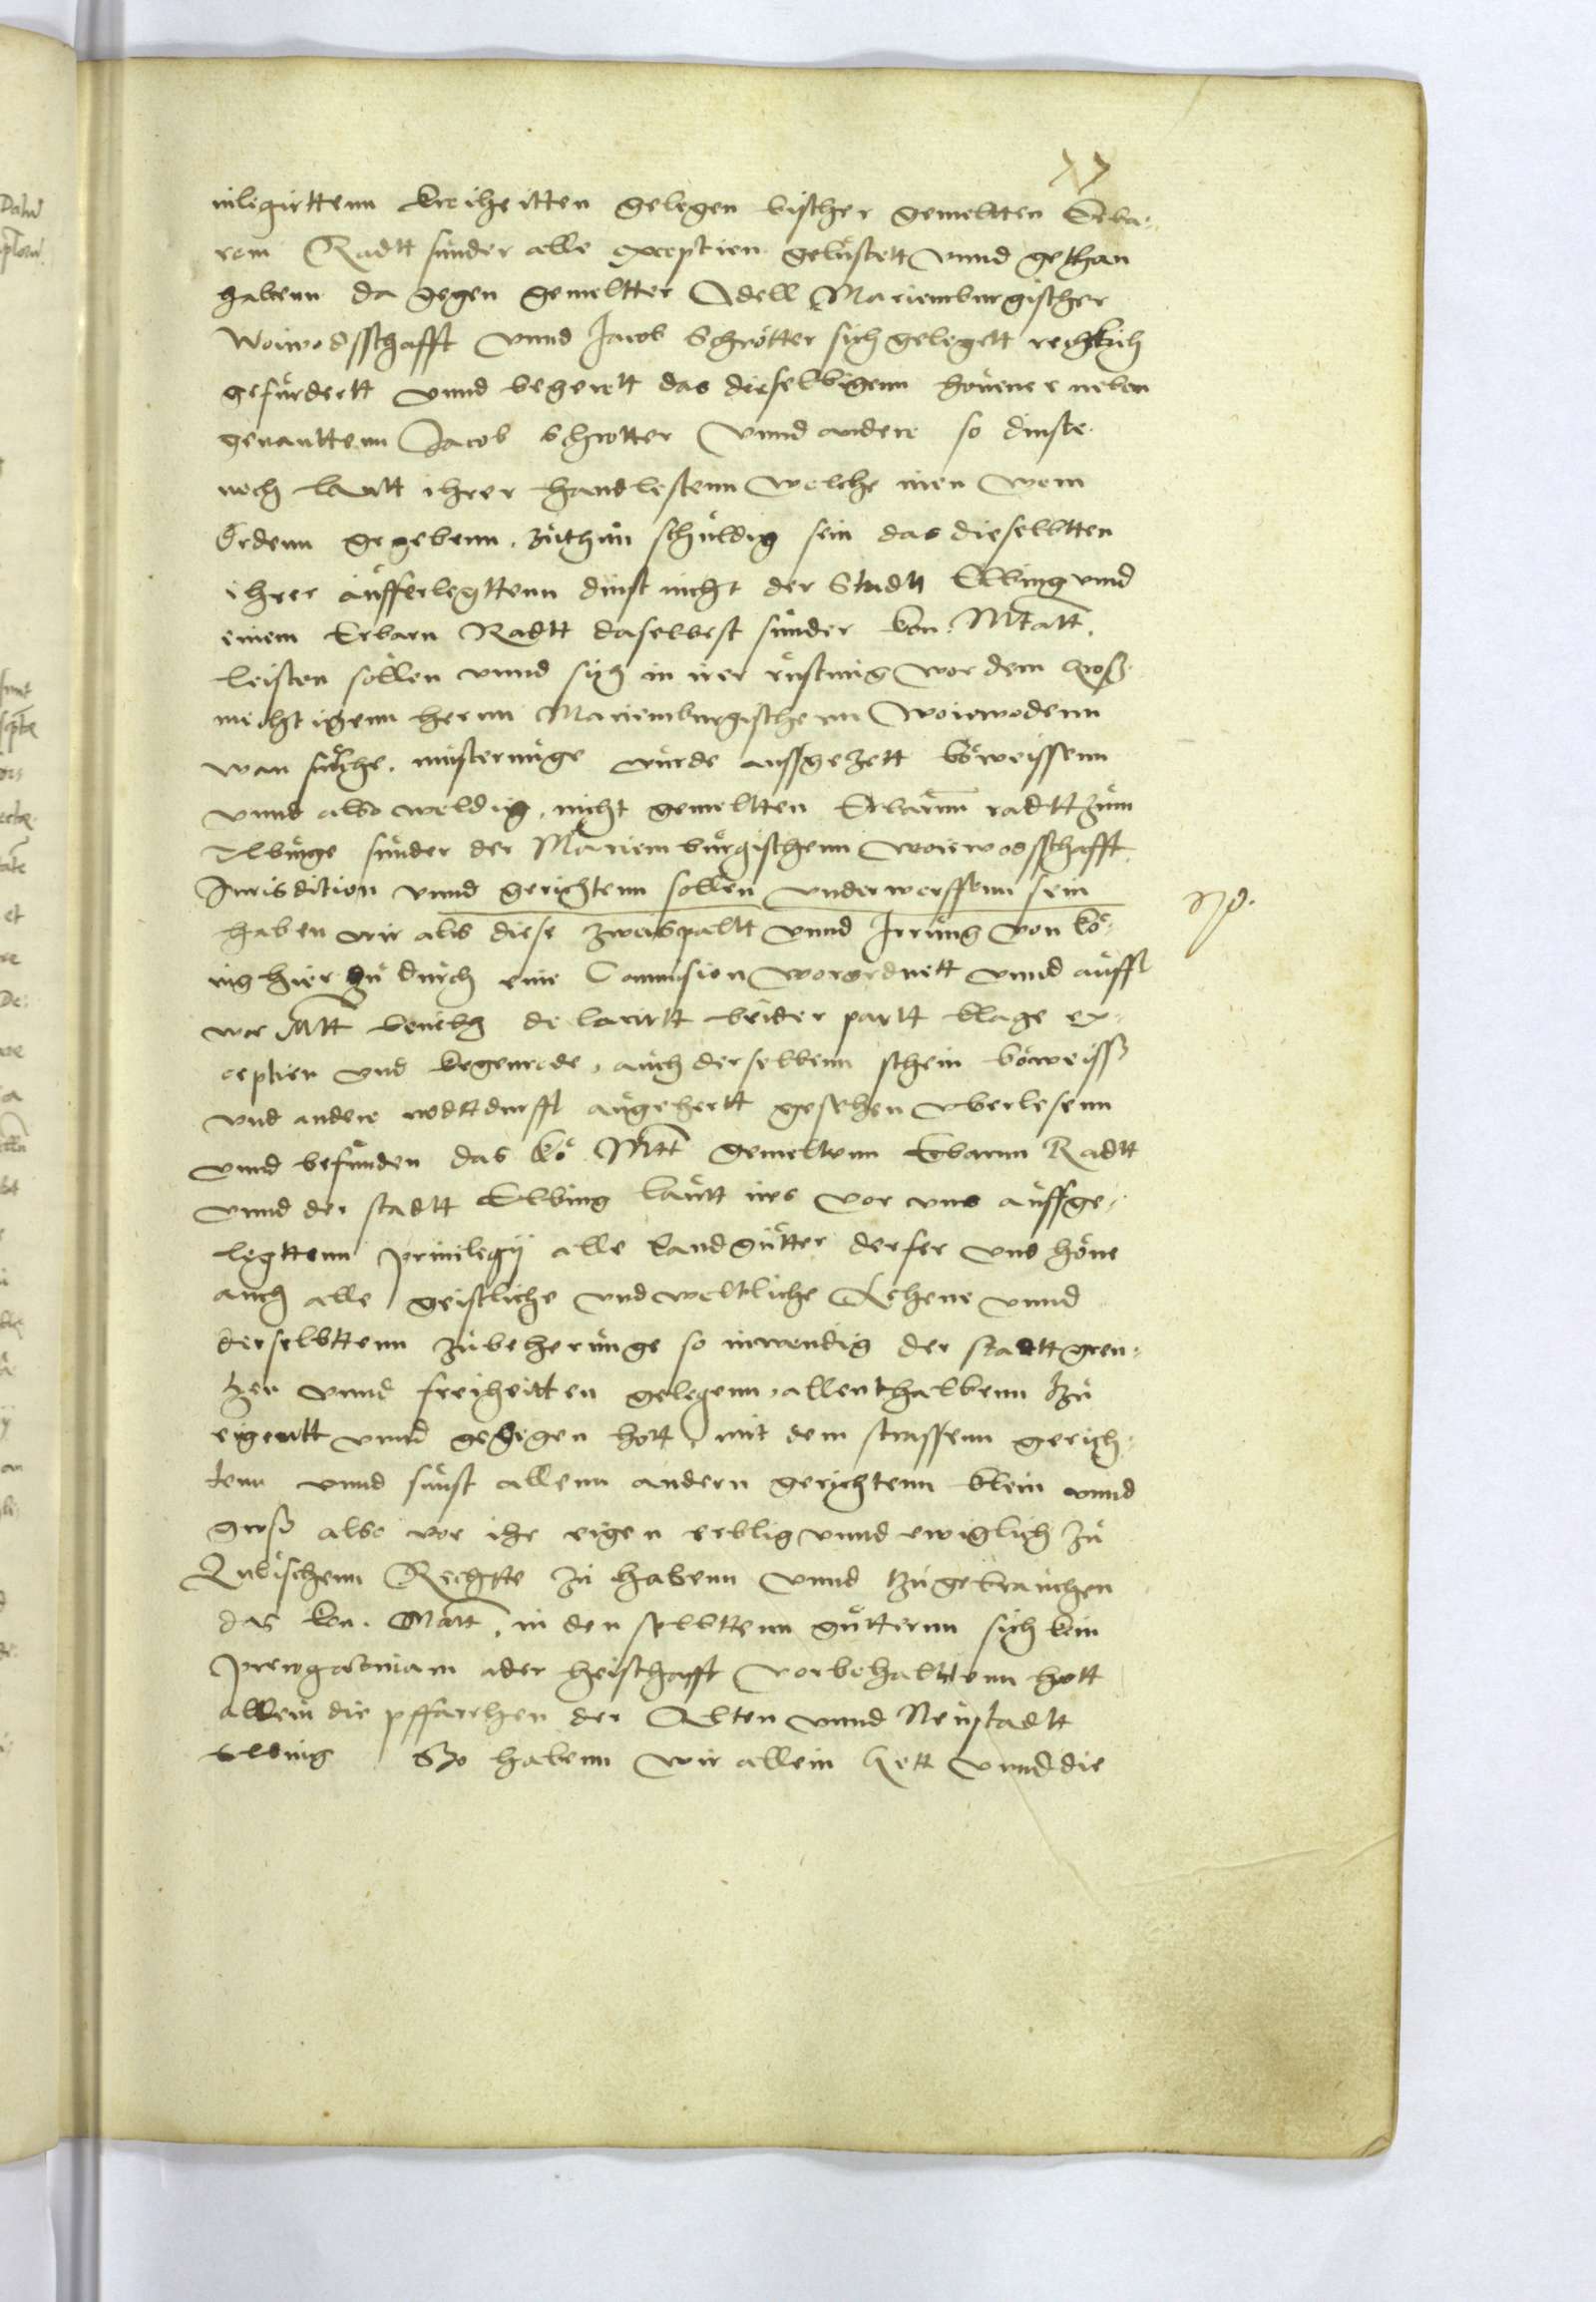 77
uilegirttenn freiheitten gelegen bischer gemeltten Erba-
rem Radtt sunder alle exception gelustett vnnd gethan
habenn da gegen gemeltter Adell Marienburgischer
Woiwodsschafft vnnd Jacob Schrötter sich gelegett rechtlich
gefurdertt vnnd begerett das dieselbigenn neben
genanttenn Jacob Schrotter vnnd andere so dinste
noch lautt ihrer handtfestenn welche inen vom
Ordenn gegebenn, zuthun schuldig sein das dieselbtten
ihrer aufferlegttenn dinst nicht der Stadtt Elbing vnnd
einem Erbarn Radtt daselbest sunder kon. Mtatt.
leisten sollen vnnd sich in irer rustung vor dem gros-
mechtigenn hernn Marienburgischenn Woiewodenn
wan sulche, musterunge wurde aussgezett böweissenn
vnnd also weldig, nicht gemeltten Erbarnn radtt zum
Elbinge sunder der Marienburgischenn woiewodsschafft
Jurisdition vnnd gerichtenn sollen vnderworffenn sein
haben wir als diese zweispaltt vnnd Irrung von kö-
nig hier zu durch eine Commission vorordnett vnnd auff
Mtt beuehl lautt beider partt klage ex-
ception vnd kegenrede, auch derselbenn schein böweiss
vnd andere nodttdurfft angehertt gesehen vberlesenn
vnnd befunden das kö Mtt gemeltenn Erbarnn Radtt
vnnd der stadtt Elbing lautt ires vor vns auffge-
legttenn priuilegij alle landgutter derfer vnd höue
auch alle geistliche vnd weltliche Lehene vnnd
derselbttenn zubeherunge so inwendig der stadtt gren-
tzen vnnd freiheitten gelegenn, allenthalbenn tzu
eigentt vnnd gegegen hott, mit dem strassenn gerich-
tenn vnnd sunst allenn andern gerichtenn klein vnnd
gross also vor ihr eigen erblig vnnd ewiglich zu
Lubischenn Rechtte zu habenn vnnd tzu gebrauchen
das kon. Matt, in den selbttenn gutternn sich kein
prerogatiuam ader herschafft vorbehalttenn hott
allein die pffarrhen der Alten vnnd Neustadtt
Elbing So habenn wir allein Gott vnnd die